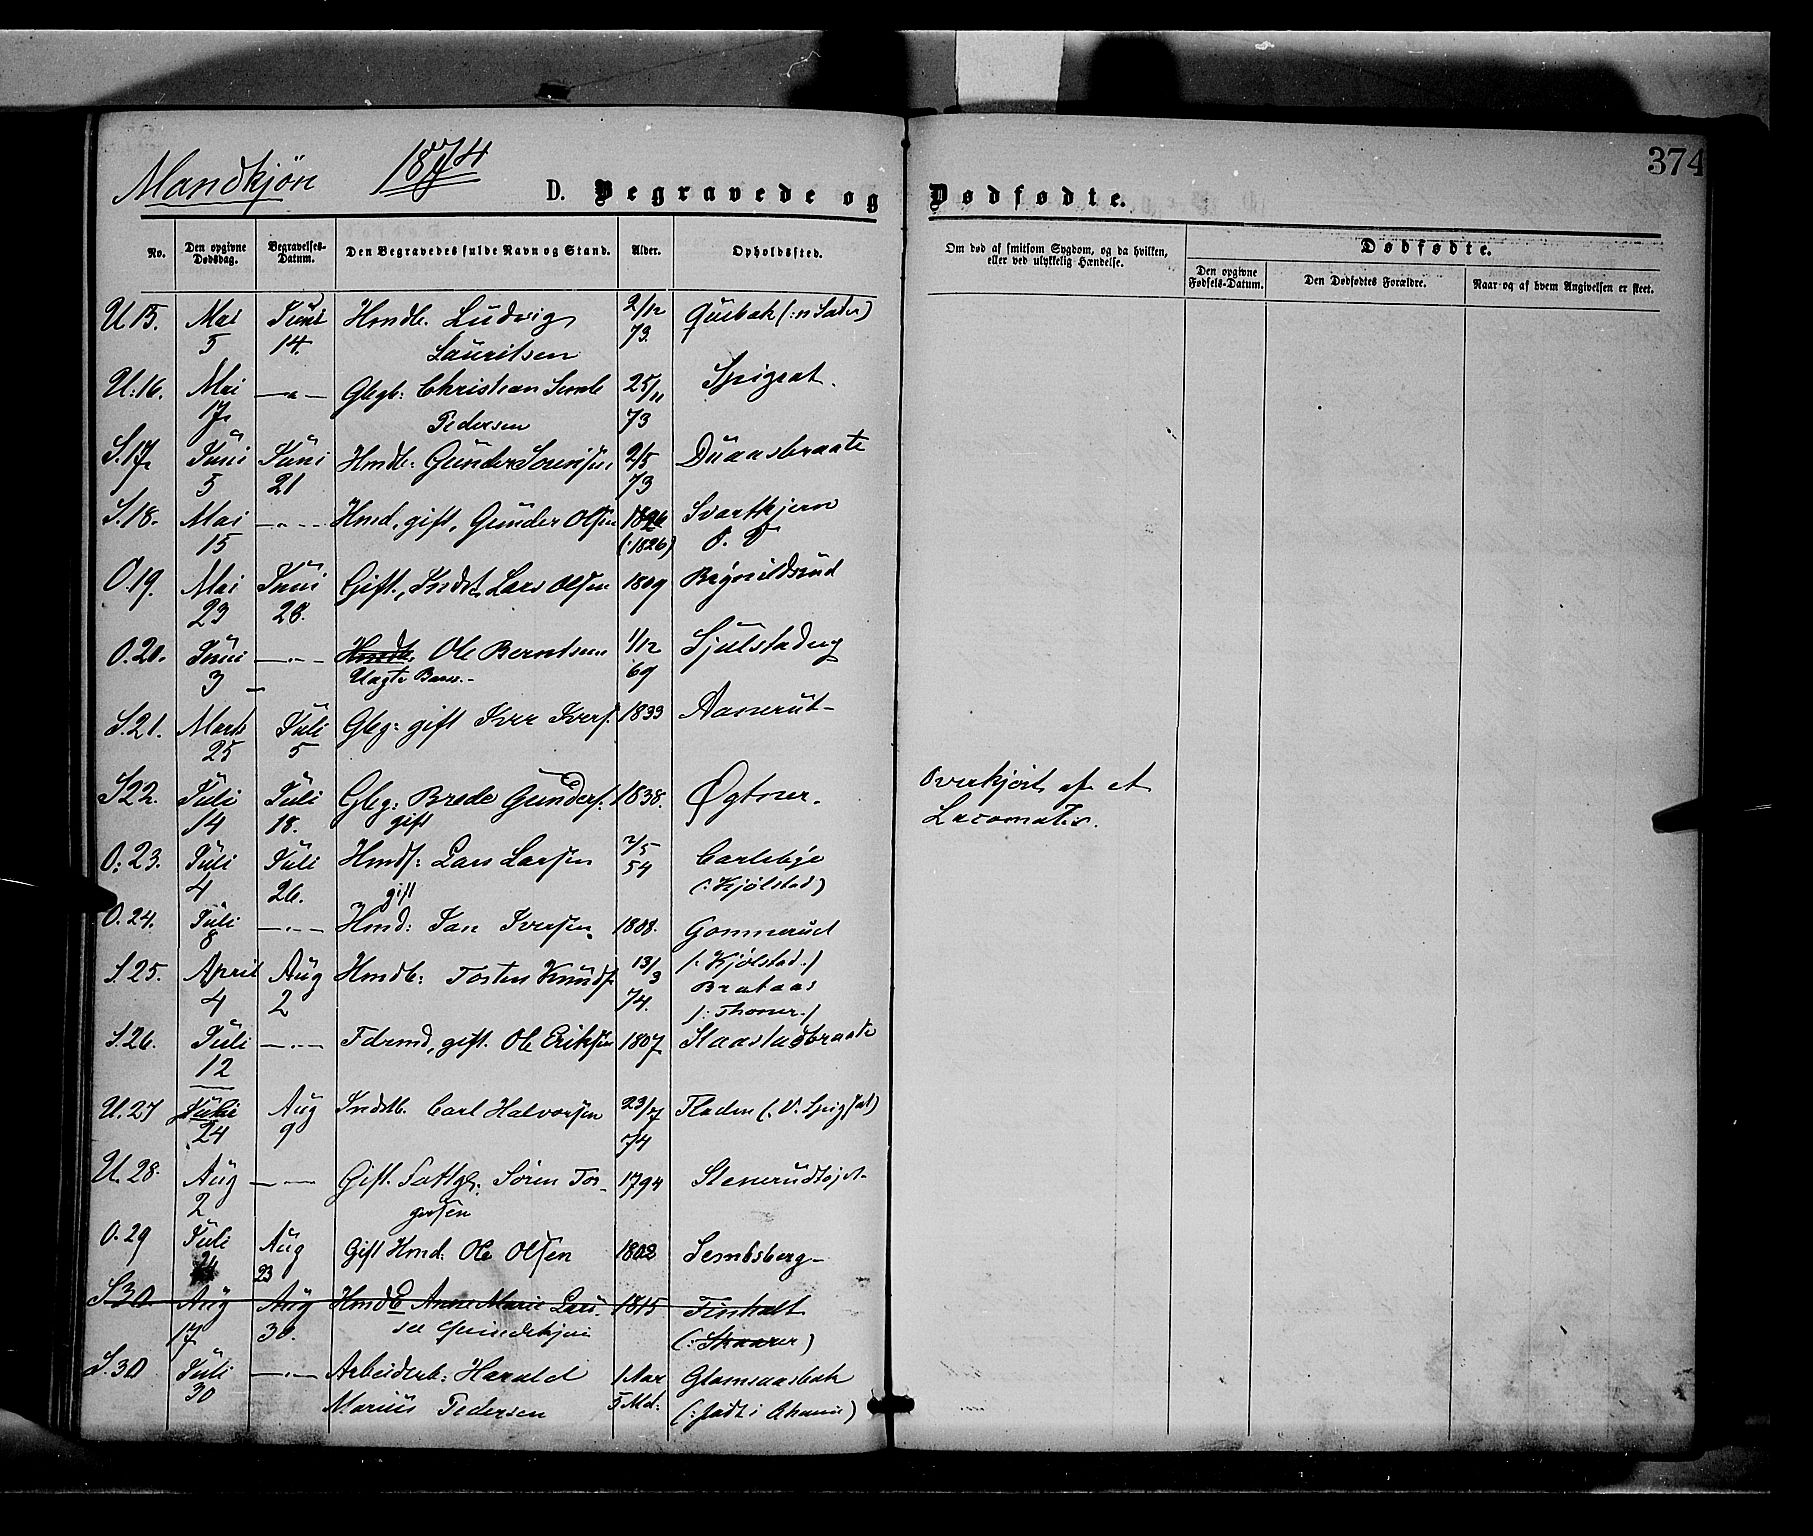 374
Mandkjøn 1874
D. Begravede og Dødfødte.
No. Den opgivne Dødsdag. Begravelses-Datum. Den Begravedes fulde Navn og Stand. Alder. Opholdssted. Om død af smitsom Sygdom, og da hvilken, eller ved ulykkelig Hændelse. Dødfødte.
Den opgivne Fødsels-Datum. Den Dødfødtes Forældre. Naar og af hvem Angivelsen er skeet.
U 15. Mai Juni Hmdb. Ludvig 2/12
5 14. Lauritsen 73.
U. 16. Mai —„— Glgb: Christian 25/11 Spigset.
17 Pedersen 73
S. 17 Juni Juni Hmdb: Gunder 2/5 Duaasbraate
5 21 73
S. 18. Mai —„— Hmd, gift, Gunder Olsen 1826 Svartkjern
15 (:1826) O. V
O. 19. Mai Juni Gift, Indst. Lars Olsen 1809
23 28.
O. 20. Juni —„— Hmdb. Ole Berntsen 1/12
3 Uægte Barn.- 69
S. 21. Marts Juli Gbg: gift Iver Ivers. 1833 Aanerud-
25 5
S 22. Juli Juli Gbg: Brede Gunders. 1838. Overkjørt af et
14 18. gift Locomotiv.
O. 23. Juli Juli Hmds: Lars Larsen 2/5
4 26. gift 54 (:Kjølstad)
O. 24. Juli —„— Hmd: Jan Iversen. 1808. Gommerud
8 /:Kjølstad./
S. 25. April Aug Hmdb: Torsten Knuds. 13/3 Brataas
4 2 74. /:Thoner./
S. 26. Juli —„— gift. Ole Eriksen 1807 Staastadbraate
12
U. 27 Juli Aug Indstb. Carl Halvorsen 23/7
24 9 74
U. 28. Aug —„— Gift. Søren Tor- 1794
2 gersen
O. 29 Juli Aug Gift Hmd. Ole Olsen 1802 Sembsberg-
24 23
S 30. Aug Aug Anne Marie Lars. 1815 Finholt
17 30. se Qvindekjøn (:Skaarer)
S. 30 Juli —„— Arbeiderb: Harald 1 Aar Glomsaasbak
30 Marius Pedersen 5 Md.